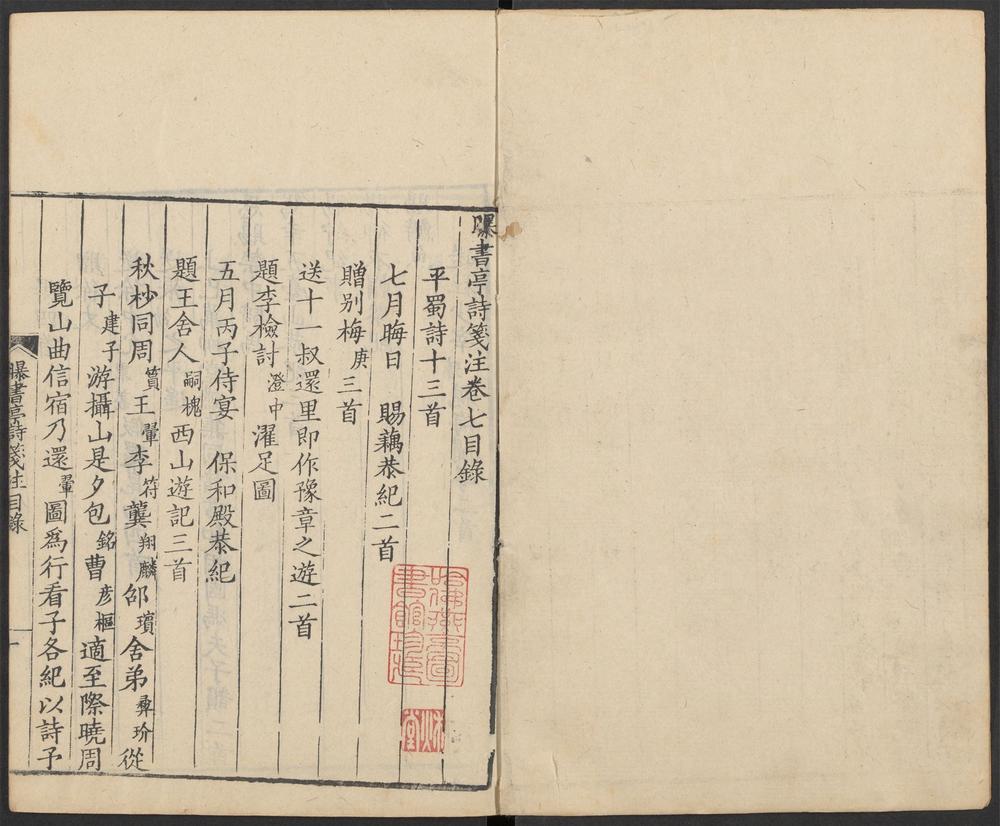 曝書亭詩箋注卷七目錄
平蜀詩十三首
七月晦日 賜藕恭紀二首
贈别梅庚三首
送十一叔還里即作豫章之遊二首
題李檢討澄中濯足圖
五月丙子侍宴 保和殿恭紀
題王舍人嗣槐西山遊記三首
秋杪同周篔王翬李符龔翔麟邵璸舍弟彝玠從
子建子游攝山是夕包銘曹彦樞適至際曉周
覽山曲信宿乃還翬圖爲行看子各紀以詩予
曝書亭詩箋注目錄
一
哈佛燕京圖書館珍藏